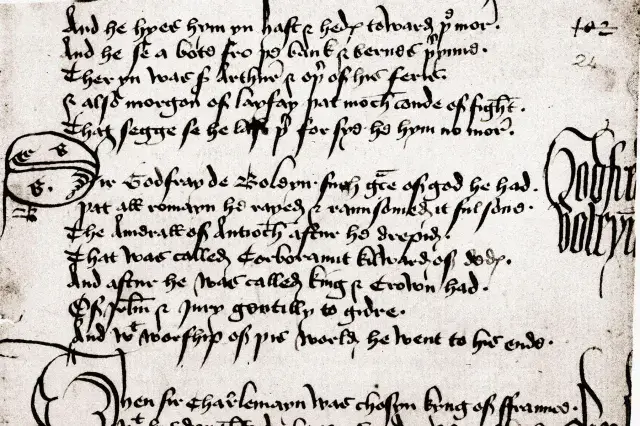 And he hyes hym yn hast & hedẏ toward þe mor.
And he se a bote fro þe bank & berneds þer ynne.
Ther yn was sr Arthur & oþer of his feris.
& also morgon of layfay þat moch coude of sight.
That segge se he last þer for syd he hym no mor.
102
24
Sir Godfray de Boloyn such gce of god he had.
þat all romayn he rayed & raunsomed it ful sone.
The Amdrall of Antioch aftur he
That was called Corboraunt kilward of dedẏ.
And aftur he was called king & Crown had.
Of Jrlm & Jury gentilly to gidre.
And wt worship of þis world he went to his ende.
Godfre
Boloyn
Then sir Charlemayn was chosyn kyng of ffraunce.